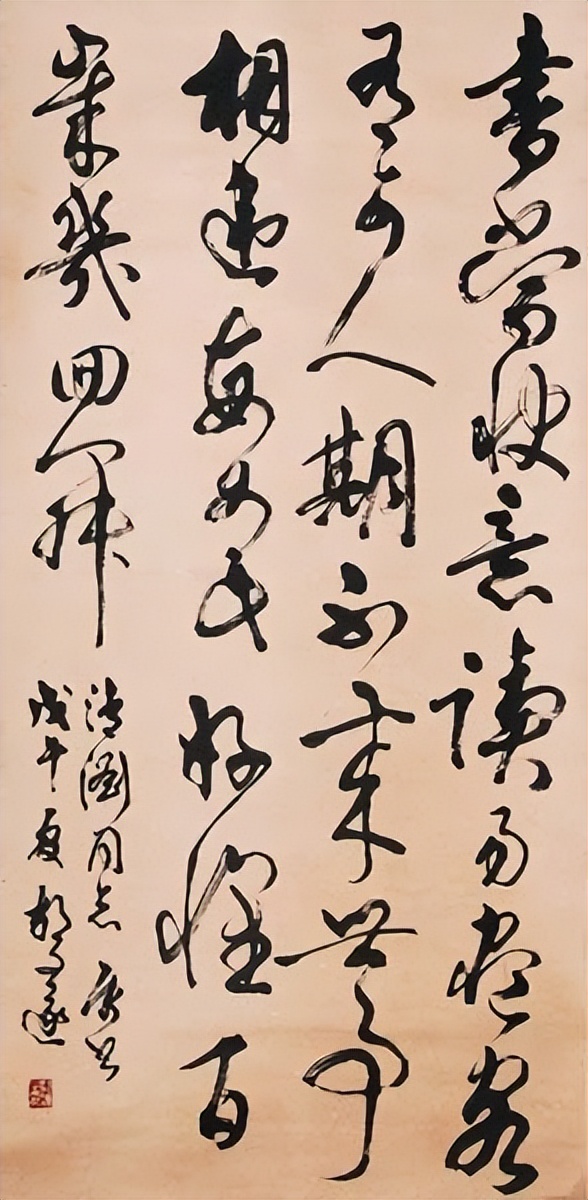 書當快意讀易盡客
有可人期不來世事
相違每如此好懷百
歲幾回開
同志
戊午夏 胡问遂